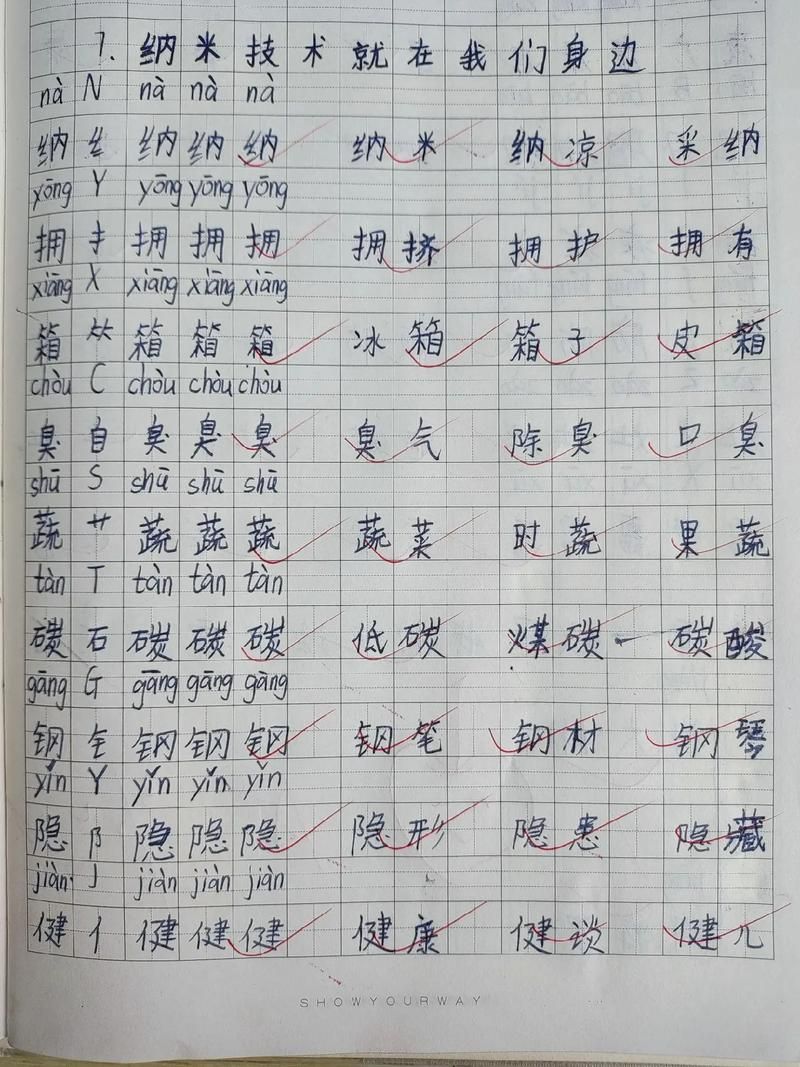 7. 纳米技术就在我们身边
nà N nà nà nà
纳 纟 纳 纳 纳 纳米 纳凉 采纳
yōng Y yōng yōng yōng
拥 扌 拥 拥 拥 拥挤 拥护 拥有
xiāng X xiāng xiāng xiāng
箱 ⺮ 箱 箱 箱 冰箱 箱子 皮箱
chòu C chòu chòu chòu
臭 自 臭 臭 臭 臭气 除臭 口臭
shū S shū shū shū
蔬 艹 蔬 蔬 蔬 蔬菜 时蔬 果蔬
tàn T tàn tàn tàn
碳 石 碳 碳 碳 低碳 煤碳 碳酸
gāng G gāng gāng gāng
钢 钅 钢 钢 钢 钢笔 钢材 钢琴
yǐn Y yǐn yǐn yǐn
隐 阝 隐 隐 隐 隐形 隐患 隐藏
jiàn J jiàn jiàn jiàn
健 亻 健 健 健 健康 健谈 健儿
SHOWYOURWAY